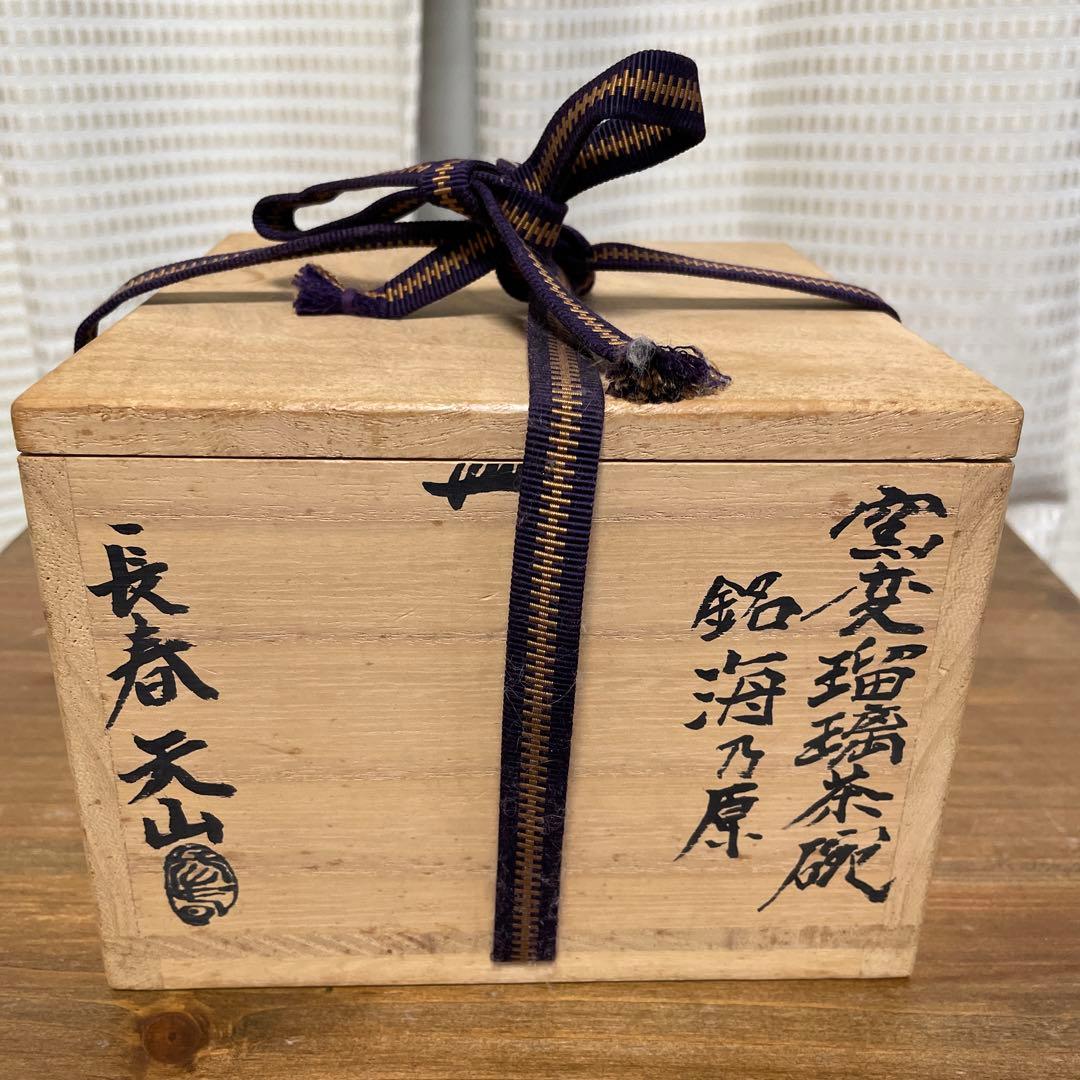 窯変瑠璃茶碗
銘 海乃原
長春 天山